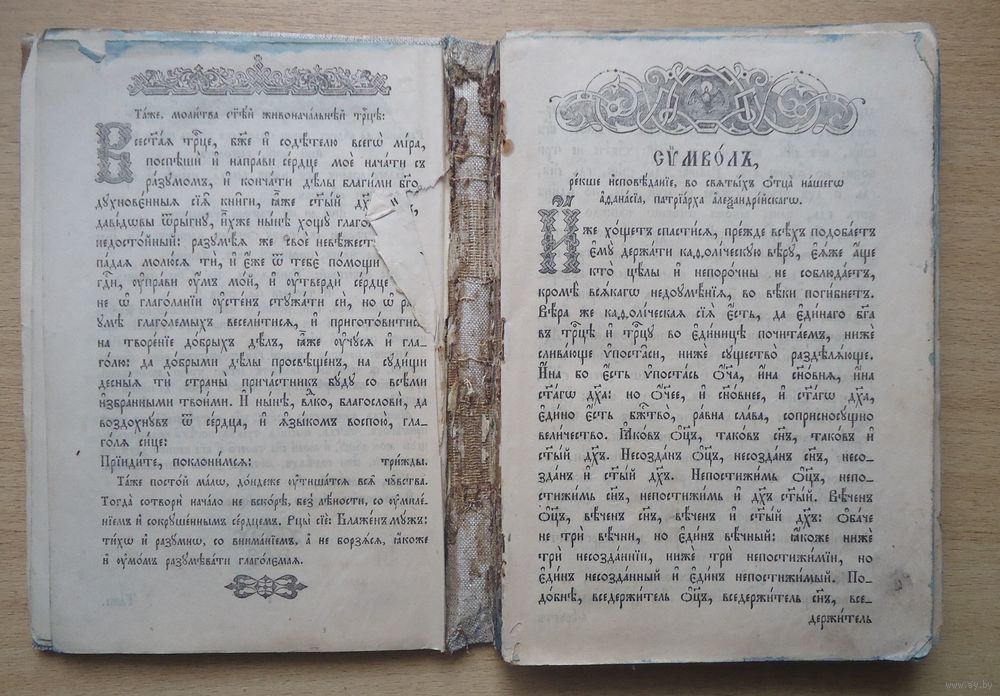 Та́же, моли́тва ст҃ѣ́й живонача́льнѣй трⷪ҇цѣ:
Всест҃а́я трⷪ҇це, бж҃е и҆ содѣ́телю всегѡ̀ мі́ра,
поспѣшѝ и҆ напра́ви се́рдце моѐ нача́ти съ
ра́зꙋмомъ, и҆ конча́ти дѣ́лы благи́ми бг҃о
дꙋхновє́нныѧ сїѧ̑ кни̑ги, ꙗ҆̀же ст҃ы́й дх҃
дави́довы ѿры́гнꙋ, и҆́хже ны́нѣ хощꙋ̀ глаго́
недосто́йный: разꙋмѣ́ѧ же своѐ невѣ́жест
па́даѧ молю́сѧ тѝ, и҆ є҆́же ѿ тебє̀ по́мощи
гдⷭ҇и, ᲂу҆пра́ви ᲂу҆́мъ мо́й, и҆ ᲂу҆твердѝ се́рдце
не ѡ҆ глаго́ланїи ᲂу҆сте́нъ стꙋжа́ти сѝ, но ѡ҆ ра́
ꙋмѣ глаго́лемыхъ весели́тисѧ, и҆ пригото́витисѧ
на творе́нїе до́брыхъ дѣ́лъ, ꙗ҆̀же ᲂу҆чꙋ́сѧ и҆ гла-
го́лю: да до́брыми дѣ́лы просвѣще́нъ, на сꙋди́щи
десны́ѧ тѝ страны̀ прича́стникъ бꙋ́дꙋ со всѣ́ми
и҆збра́нными твои́ми. И҆ ны́нѣ, влⷣко, благословѝ, да
воздохнꙋ́въ ѿ се́рдца, и҆ ѧ҆зы́комъ воспою̀, гла-
го́лѧ си́це:
Прїиди́те, поклони́мсѧ: три́жды.
Та́же посто́й ма́лѡ, до́ндеже ᲂу҆тиша́тсѧ всѧ̑ чꙋ̑вства.
Тогда̀ сотворѝ нача́ло не вско́рѣ, без̾ лѣ́ности, со ᲂу҆миле́-
нїемъ и҆ сокрꙋше́ннымъ се́рдцемъ. Рцы̀ сїѐ: Бл҃же́нъ мꙋ́жъ:
ти́хѡ и҆ разꙋ́мнѡ, со внима́нїемъ, а҆ не борзѧ́сѧ, ꙗ҆́коже
и҆ ᲂу҆мо́мъ разꙋмѣва́ти глаго́лемаѧ.
Та́же
СѴ́МВОЛЪ,
ре́кше и҆сповѣ́данїе, во свѧты́хъ ѻ҆тца̀ на́шегѡ
а҆ѳана́сїа, патрїа́рха а҆леѯандрі́йскагѡ.
И҆́же хо́щетъ спасти́сѧ, пре́жде всѣ́хъ подоба́етъ
є҆мꙋ̀ держа́ти каѳоли́ческꙋю вѣ́рꙋ, є҆ѧ́же а҆́ще
кто̀ цѣ́лы и҆ непоро́чны не соблюда́етъ,
кромѣ̀ всѧ́кагѡ недоꙋмѣ́нїѧ, во вѣ́ки поги́бнетъ.
Вѣ́ра же каѳоли́ческаѧ сїѧ̀ є҆́сть, да є҆ди́наго бг҃а
въ трⷪ҇цѣ и҆ трⷪ҇цꙋ во є҆ди́ницѣ почита́емъ, нижѐ
слива́юще ѵ҆поста̑си, нижѐ сꙋщество̀ раздѣлѧ́юще.
И҆́на бо є҆́сть ѵ҆поста́сь ѻ҆́ча, и҆́на сн҃о́внѧ, и҆́на
ст҃а́гѡ дх҃а: но ѻ҆́чее, и҆ сн҃о́внее, и҆ ст҃а́гѡ дх҃а,
є҆ди́но є҆́сть бжⷭ҇тво̀, равна̀ сла́ва, соприсносꙋ́щно
вели́чество. Ꙗ҆ко́въ ѻ҆ц҃ъ, тако́въ сн҃ъ, тако́въ и҆
ст҃ы́й дх҃ъ. Несозда́нъ ѻ҆ц҃ъ, несозда́нъ сн҃ъ, несо-
зда́нъ и҆ ст҃ы́й дх҃ъ. Непостижи́мь ѻ҆ц҃ъ, непо-
стижи́мь сн҃ъ, непостижи́мь и҆ дх҃ъ ст҃ы́й. Вѣ́ченъ
ѻ҆ц҃ъ, вѣ́ченъ сн҃ъ, вѣ́ченъ и҆ ст҃ы́й дх҃ъ: ѻ҆ба́че
не трѝ вѣ̑чни, но є҆ди́нъ вѣ́чный: ꙗ҆́коже нижѐ
трѝ несозда́ннїи, нижѐ трѝ непостижи́мїи, но
є҆ди́нъ несозда́нный и҆ є҆ди́нъ непостижи́мый. По-
до́бнѣ, вседержи́тель ѻ҆ц҃ъ, вседержи́тель сн҃ъ, все-
держи́тель
www.ay.by